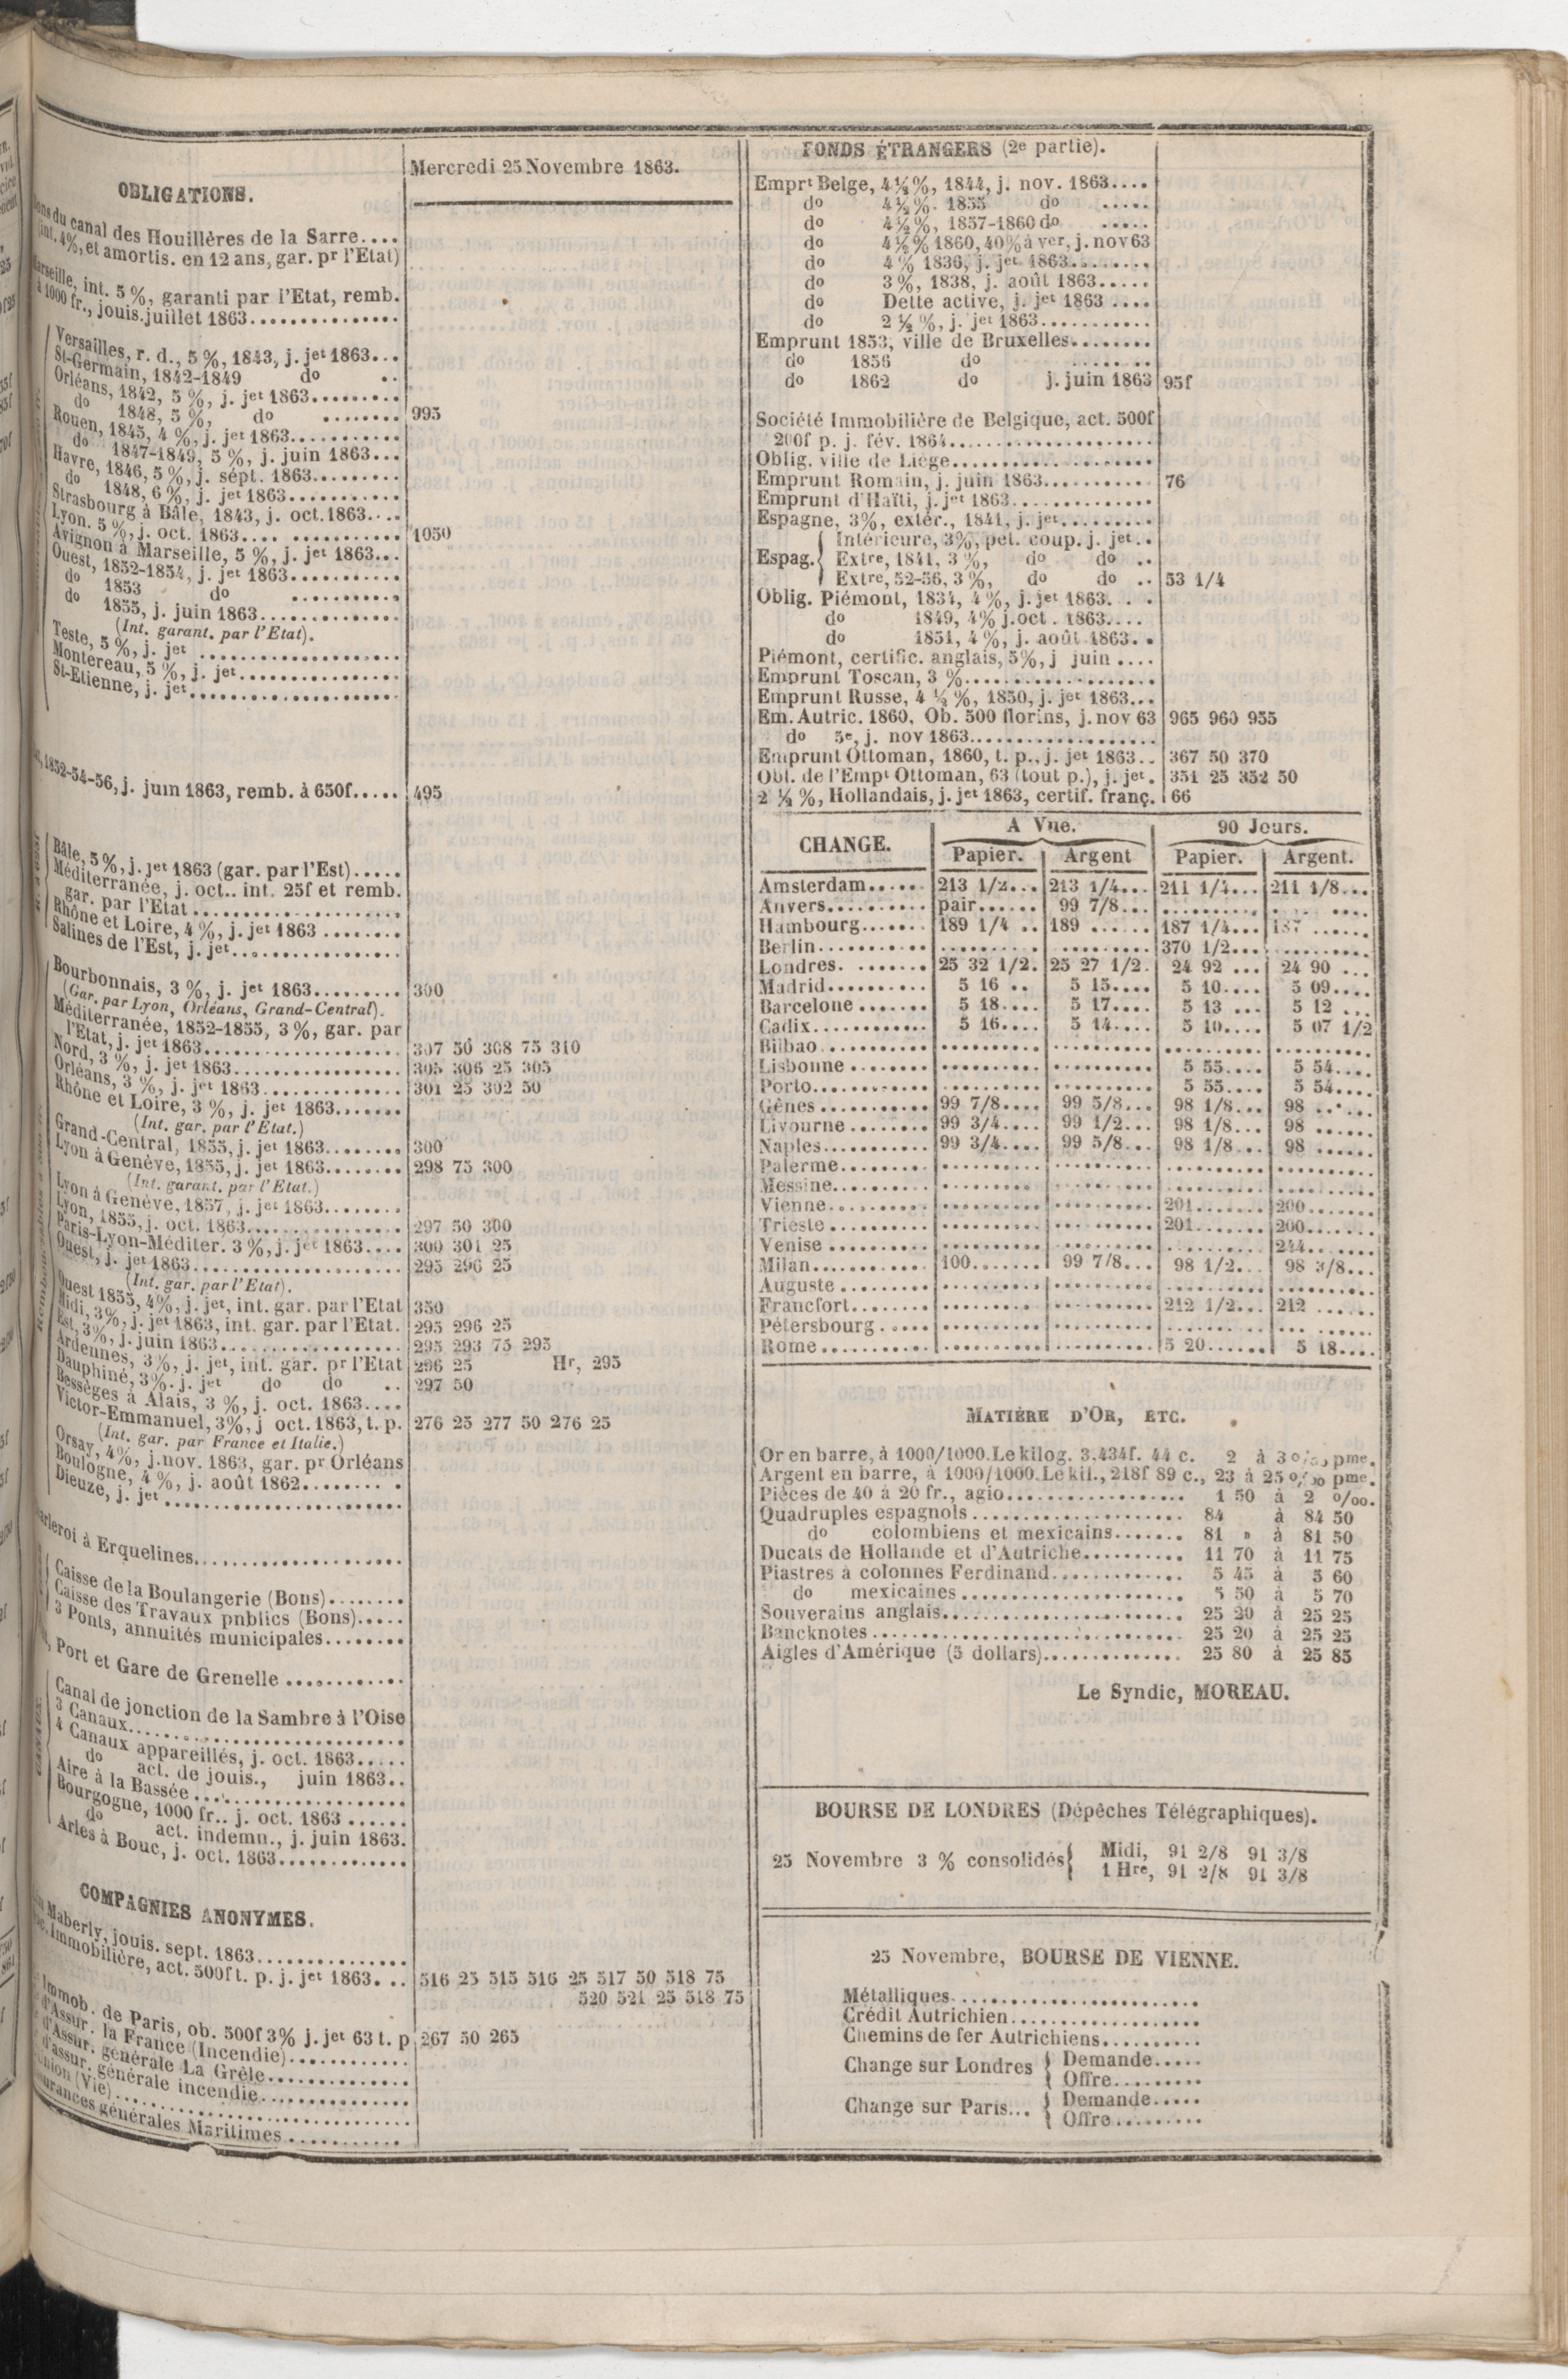 OBLIGATIONS.
Mercredi 25 Novembre 1863.
du canal des Houillères de la Sarre....
(int. 4%, et amortis. en 12 ans, gar. pr l'Etat)
Marseille, int. 5%, garanti par l'Etat, remb.
à 1000 fr., jouis. juillet 1863...............
Versailles, r. d., 5%, 1843, j. jet 1863...
St-Germain, 1842-1849 do ..
Orléans, 1842, 5%, j. jet 1863.........
do 1848, 5%, do ........ 995
Rouen, 1845, 4%, j. jet 1863...........
do 1847-1849, 5%, j. juin 1863...
Havre, 1846, 5%, j. sept. 1863.........
do 1848, 6%, j. jet 1863...........
Strasbourg à Bâle, 1843, j. oct. 1863....
Lyon. 5%, j. oct. 1863.... ........... 1050
Avignon à Marseille, 5%, j. jet 1863...
Ouest, 1852-1854, j. jet 1863...........
do 1853 do ...........
do 1855, j. juin 1863..............
(Int. garant. par l'Etat).
Teste, 5%, j. jet ....................
Montereau, 5%, j. jet................
St-Etienne, j. jet.....................
1852-54-56, j. juin 1863, remb. à 650f..... 495
Bâle, 5%, j. jet 1863 (gar. par l'Est).....
Méditerranée, j. oct.. int. 25f et remb.
gar. par l'Etat.....................
Rhône et Loire, 4%, j. jet 1863 ........
Salines de l'Est, j. jet.................
Bourbonnais, 3%, j. jet 1863......... 300
(Gar. par Lyon, Orléans, Grand-Central).
Méditerranée, 1852-1855, 3%, gar. par
l'Etat, j. jet 1863.................... 307 50 308 75 310
Nord, 3%, j. jet 1863................. 305 306 25 305
Orléans, 3%, j. jet 1863.............. 301 25 302 50
Rhône et Loire, 3%, j. jet 1863.......
(Int. gar. par l'Etat.)
Grand-Central, 1855, j. jet 1863........ 300
Lyon à Genève, 1855, j. jet 1863........ 298 75 300
(Int. garant. par l'Etat.)
Lyon à Genève, 1857, j. jet 1863........
Lyon, 1855, j. oct. 1863................ 297 50 300
Paris-Lyon-Méditer. 3%, j. jet 1863.... 300 301 25
Ouest, j. jet 1863..................... 295 296 25
(Int. gar. par l'Etat).
Ouest 1855, 4%, j. jet, int. gar. par l'Etat 350
Midi, 3%, j. jet 1863, int. gar. par l'Etat. 295 296 25
Est, 3%, j. juin 1863................... 295 293 75 295
Ardennes, 3%, j. jet, int. gar. pr l'Etat 296 25 Hr, 295
Dauphiné, 3%. j. jet do do .. 297 50
Bessèges à Alais, 3%, j. oct. 1863....
Victor-Emmanuel, 3%, j oct. 1863, t. p. 276 25 277 50 276 25
(Int. gar. par France et Italie.)
Orsay, 4%, j. nov. 1863, gar. pr Orléans
Boulogne, 4%, j. août 1862........ .
Dieuze, j. jet ........................
à Erquelines.....................
Caisse de la Boulangerie (Bons)........
Caisse des Travaux pnblics (Bons).....
3 Ponts, annuités municipales........
Port et Gare de Grenelle ............
Canal de jonction de la Sambre à l'Oise
3 Canaux............................
4 Canaux appareillés, j. oct. 1863.....
do act. de jouis., juin 1863..
Aire à la Bassée......................
Bourgogne, 1000 fr.. j. oct. 1863 ......
do act. indemn., j. juin 1863.
Arles à Bouc, j. oct. 1863.............
COMPAGNIES ANONYMES.
Maberly, jouis. sept. 1863...............
Immobilière, act. 500f t. p. j. jet 1863. .. 516 25 515 516 25 517 50 518 75
520 521 25 518 75
Immob. de Paris, ob. 500f 3% j. jet 63 t. p 267 50 265
d'Assur. la France (Incendie)............
d'Assur. générale La Grêle...............
d'assur. générale incendie...............
(Vie)..............................
générales Maritimes ...........
FONDS ÉTRANGERS (2e partie).
Emprt Belge, 4½%, 1844, j. nov. 1863....
do 4½%. 1855 do .....
do 4½%, 1857-1860 do .....
do 4½% 1860, 40% à ver, j. nov 63
do 4% 1836, j. jet 1863........
do 3%, 1838, j. août 1863.....
do Dette active, j. jet 1863 ....
do 2½%, j. jet 1863...........
Emprunt 1853, ville de Bruxelles........
do 1856 do ........
do 1862 do j. juin 1863 95f
Société Immobilière de Belgique, act. 500f
200f p. j. fév. 1864....................
Oblig. ville de Liége....................
Emprunt Romain, j. juin 1863........... 76
Emprunt d'Haïti, j. jet 1863..............
Espagne, 3%, extér., 1841, j. jet.........
Espag. Intérieure, 3%, pet. coup. j. jet..
Extre, 1841, 3%, do do ..
Extre, 52-56, 3%, do do .. 53 1/4
Oblig. Piémont, 1834, 4%, j. jet 1863. . .
do 1849, 4% j. oct . 1863....
do 1851, 4%, j. août 1863. .
Piémont, certific. anglais, 5%, j juin ....
Emprunt Toscan, 3 %...................
Emprunt Russe, 4 ½%, 1850, j. jet 1863...
Em. Autric. 1860, Ob. 500 florins, j. nov 63 965 960 955
do 5e, j. nov 1863...................
Emprunt Ottoman, 1860, t. p., j. jet 1863.. 367 50 370
Obl. de l'Empt Ottoman, 63 (tout p.), j. jet. 351 25 352 50
2 ½%, Hollandais, j. jet 1863, certif. franç. 66
CHANGE. A Vue. 90 Jours.
Papier. Argent Papier. Argent.
Amsterdam...... 213 1/2... 213 1/4... 211 1/4... 211 1/8...
Anvers.......... pair...... 99 7/8... .......... . ....
Hambourg....... 189 1/4 .. 189 ...... 187 1/4... 187 ......
Berlin........... .......... .......... 370 1/2... ..........
Londres. ....... 25 32 1/2. 25 27 1/2. 24 92 ... 24 90 ...
Madrid.......... 5 16 .. 5 15.... 5 10.... 5 09....
Barcelone ....... 5 18.... 5 17.... 5 13 ... 5 12 ...
Cadix............ 5 16.... 5 14.... 5 10.... 5 07 1/2
Bilbao........... .......... .......... .......... ..........
Lisbonne ........ .......... .......... 5 55.... 5 54....
Porto............ .......... .......... 5 55.... 5 54....
Gênes ........... 99 7/8.... 99 5/8... 98 1/8... 98 ......
Livourne ........ 99 3/4.... 99 1/2... 98 1/8... 98 ......
Naples........... 99 3/4.... 99 5/8... 98 1/8... 98 ......
Palerme......... .......... .......... .......... ..........
Messine.......... .......... .......... .......... ..........
Vienne.......... .......... .......... 201....... 200.......
Trieste .......... .......... .......... 201....... 200.......
Venise .......... .......... .......... .......... 244.......
Milan............ 100....... 99 7/8... 98 1/2... 98 3/8...
Auguste ......... .......... .......... .......... ..........
Francfort........ .......... .......... 212 1/2... 212 ......
Pétersbourg ..... .......... .......... .......... ..........
Rome........... .......... .......... 5 20....... 5 18....
MATIÈRE D'OR, ETC.
Or en barre, à 1000/1000. Le kilog. 3.434f. 44 c. 2 à 3 o/oo pme.
Argent en barre, à 1000/1000. Le kil., 218f 89 c., 23 à 25 o/oo pme.
Pièces de 40 à 20 fr., agio.................. 1 50 à 2 o/oo.
Quadruples espagnols...................... 84 à 84 50
do colombiens et mexicains....... 81 » à 81 50
Ducats de Hollande et d'Autriche.......... 11 70 à 11 75
Piastres à colonnes Ferdinand............. 5 45 à 5 60
do mexicaines....................... 5 50 à 5 70
Souverains anglais......................... 25 20 à 25 25
Bancknotes................................ 25 20 à 25 25
Aigles d'Amérique (5 dollars).............. 25 80 à 25 85
Le Syndic, MOREAU.
BOURSE DE LONDRES (Dépêches Télégraphiques).
25 Novembre 3 % consolidés Midi, 91 2/8 91 3/8
1 Hre, 91 2/8 91 3/8
25 Novembre, BOURSE DE VIENNE.
Métalliques..........................
Crédit Autrichien....................
Chemins de fer Autrichiens..........
Change sur Londres Demande.....
Offre.........
Change sur Paris... Demande.....
Offre.........